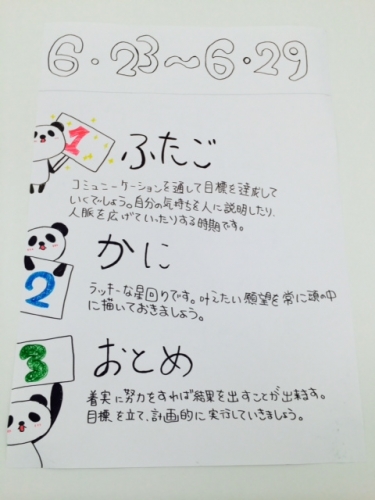 6・23〜6・29
1
ふたご
コミュニケーションを通して目標を達成して
いくでしょう。自分の気持ちを人に説明したり、
人脈を広げていったりする時期です。
2
かに
ラッキーな星回りです。叶えたい願望を常に頭の中
に描いておきましょう。
3
おとめ
着実に努力をすれば結果を出すことが出来ます。
目標を立て、計画的に実行していきましょう。